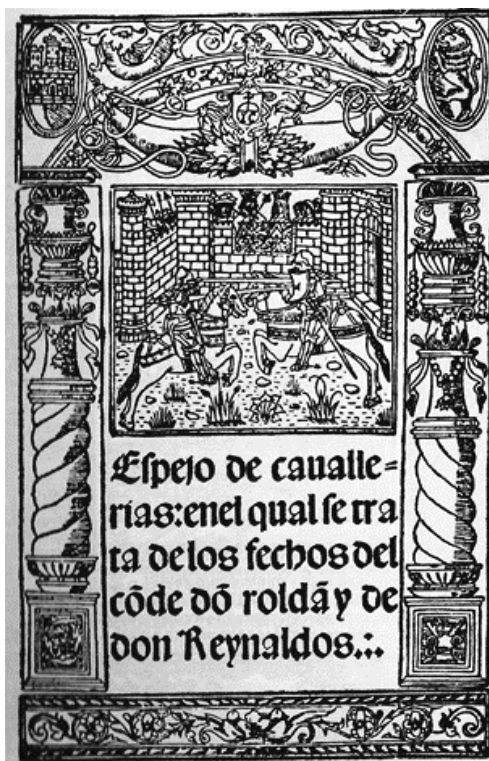 Espejo de caualle=
rias: enel qual se tra
ta delos fechos del
cōde dō roldā y de
don Reynaldos.:.